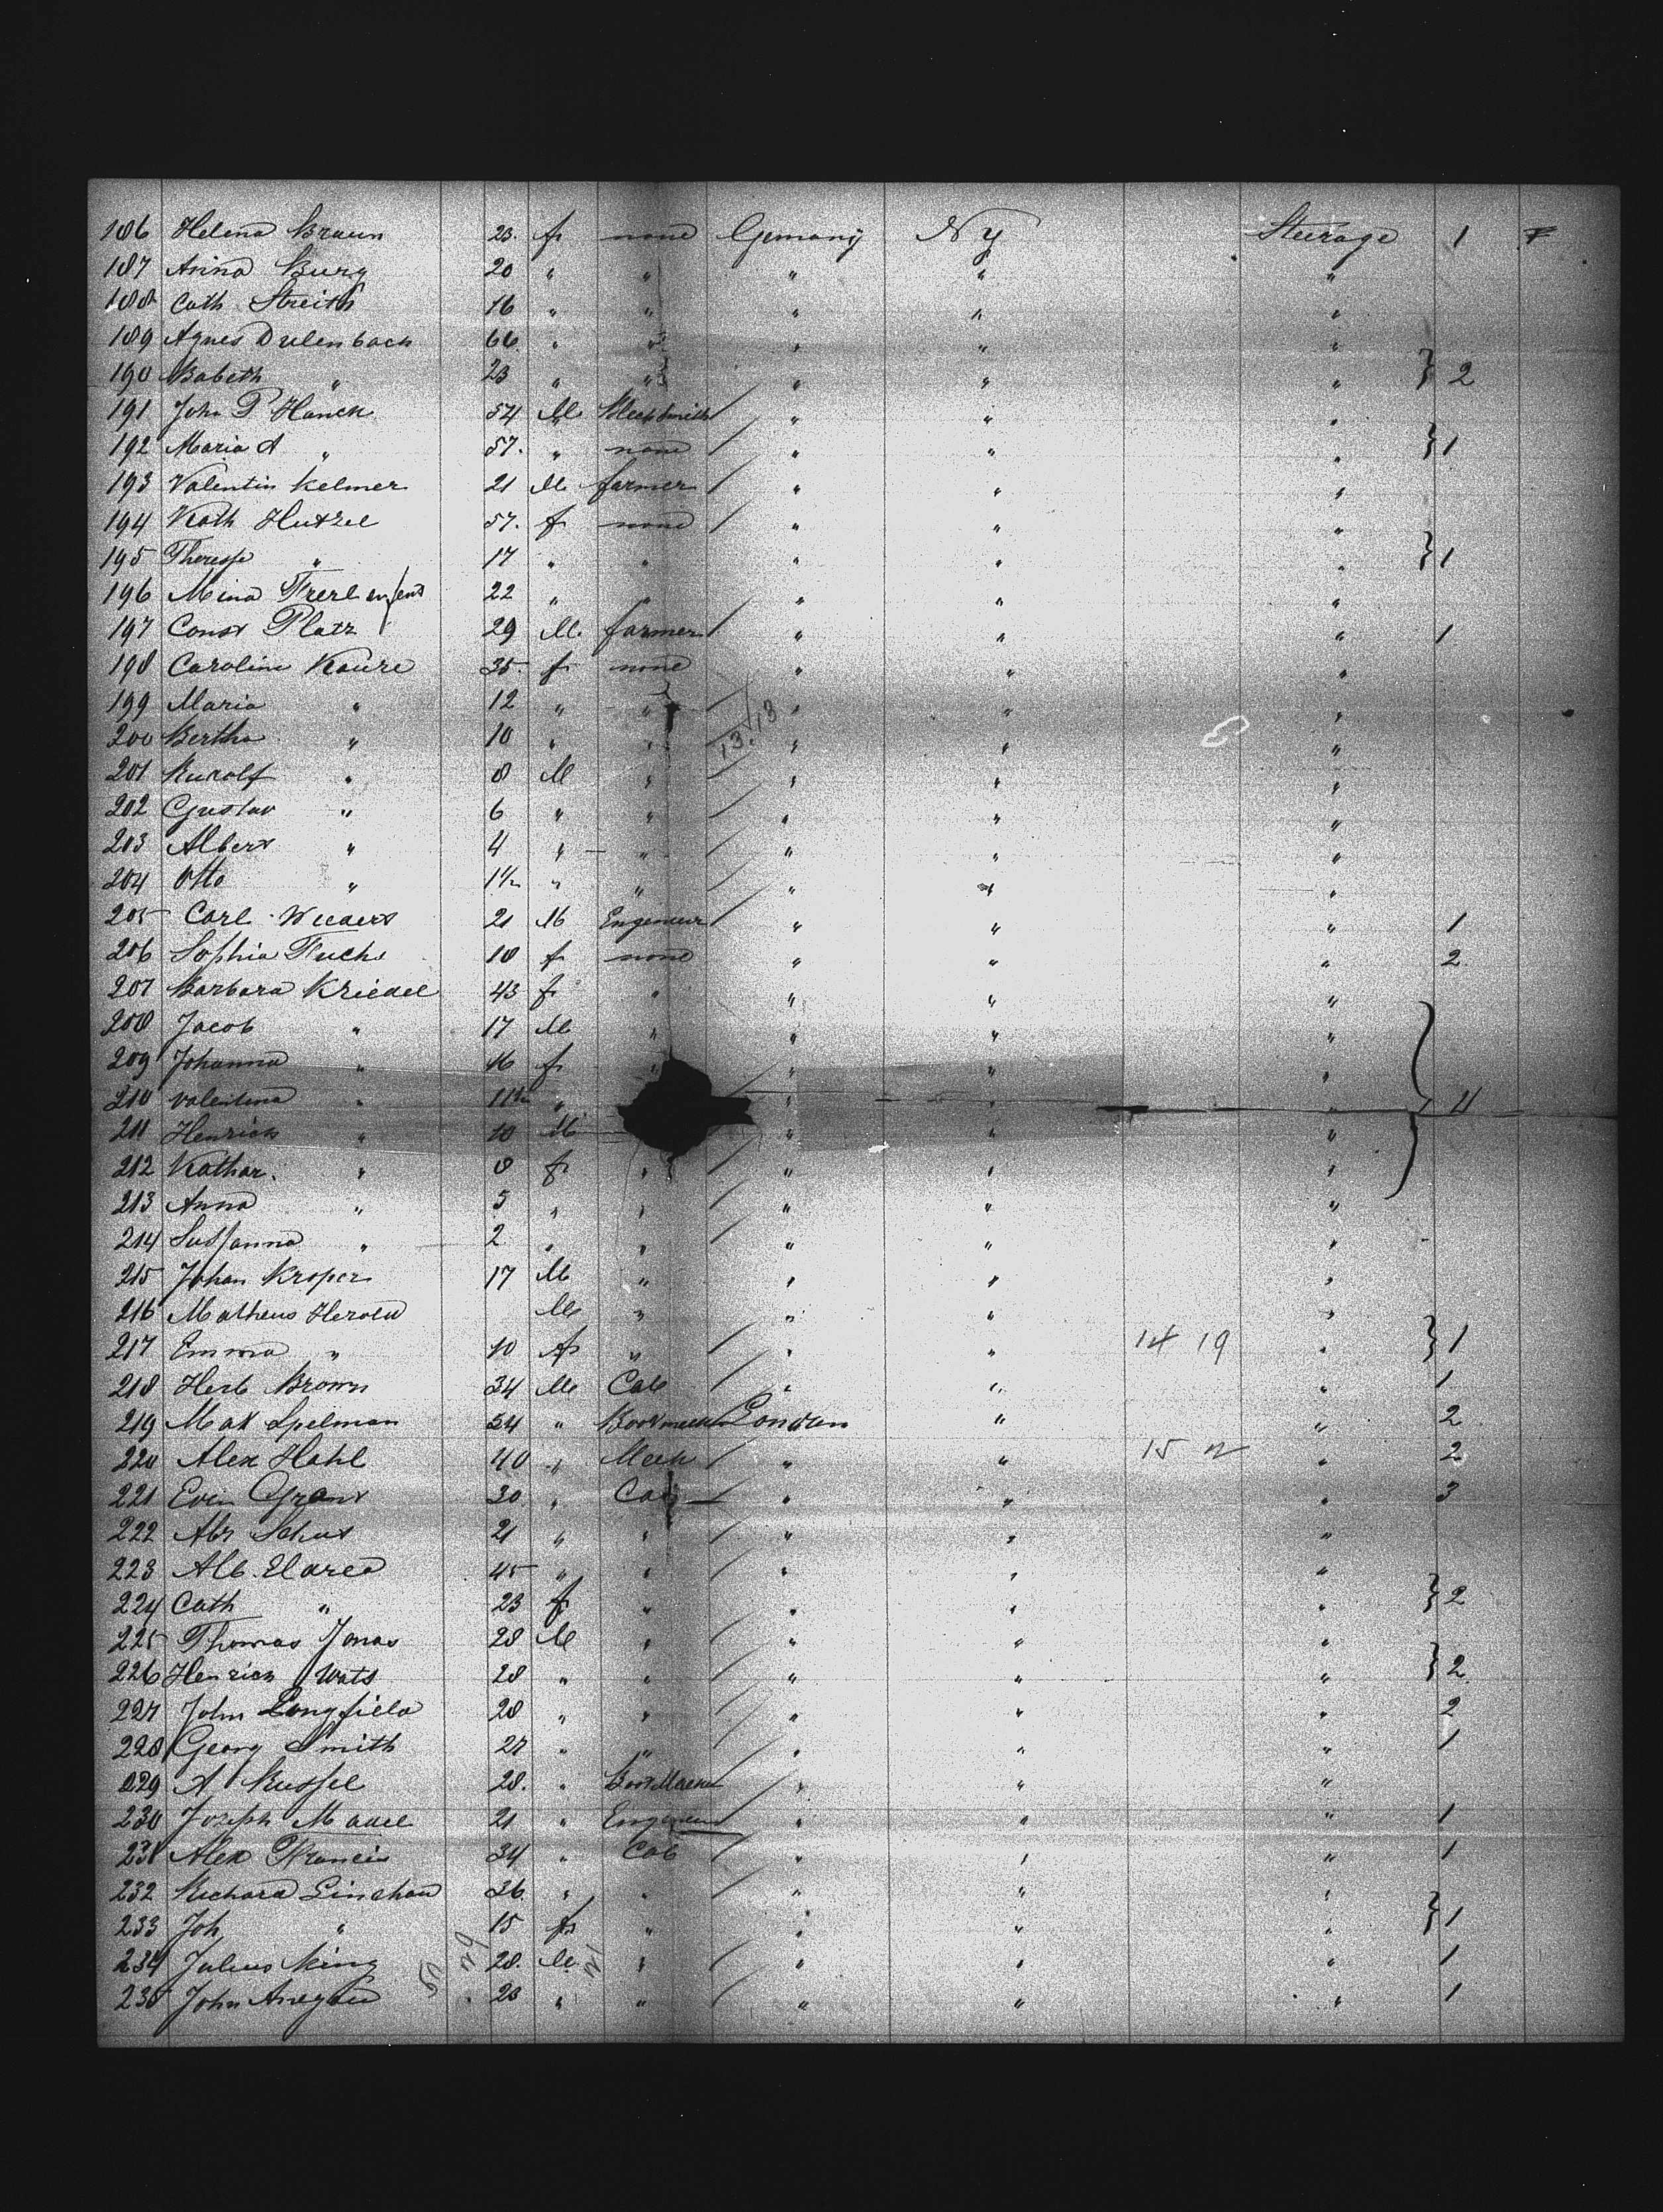 186 Helena Braun 23. f none Gemany Ny Steerage 1
187 Anna Burg 20 " " " " "
188 Cath Streith 16 " " " " "
189 Agnes Dulenbach 66 " " " " "
190 Babeth " 23 " " " " " } 2
191 John P Hanck 54 M Blecksmith " " "
192 Maria A " 57. " none " " " } 1
193 Valentin Kelmer 21 M farmer " " "
194 Kath Hutzel 57. f none " " "
195 Therese " 17 " " " " " } 1
196 Mina 22 " " " " "
197 Const Platz 29 M. farmer " " " 1
198 Caroline 35 f none " " "
199 Maria " 12 " " " " "
200 Bertha " 10 " " 13.13 " " "
201 Rudolf " 8 M " " " "
202 Gustav " 6 " " " " "
203 Albert " 4 " " " " "
204 Otto " 1½ " " " " "
205 Carl 21 M Engeneur " " " 1
206 Sophia Fuchs 18 f none " " " 2
207 Barbara Kriedel 43 f " " " "
208 Jacob " 17 M " " " "
209 Johanna " 16 f " " " "
210 Valentina " 11½ " " " " } 4
211 Henrich " 10 M " " "
212 Kathar. " 8 f " " " "
213 Anna " 5 " " " " "
214 Sussanna " 2 " " " " "
215 Johan Kroper 17 M " " " "
216 Matheus Herold M " " " "
217 Emma " 10 f " " " 14 19 " } 1
218 Herb Brown 34 M Cab " " " 1
219 Max Spelman 34 " London " " 2
220 Alex Hahl 40 " Mech " " 15 " 2
221 Evin Grant 30 " Cab " " " 3
222 Abr Schut 21 " " " " "
223 Alb. 45 " " " " "
224 Cath " 23 f " " " " } 2
225 Thomas Jonas 28 M " " " "
226 Henrich Wats 28 " " " " " } 2
227 John Longfield 28 " " " " " 2
228 Georg Smith 27 " " " " " 1
229 A Russel 28. " " " "
230 Joseph 21 " Engeneur " " " 1
231 Alex Francis 34 " Cab " " " 1
232 Richard 36 " " " " "
233 Joh " 15 f " " " " } 1
234 Julius King 28. M " " " " 1
235 John 23 " " " " " 1